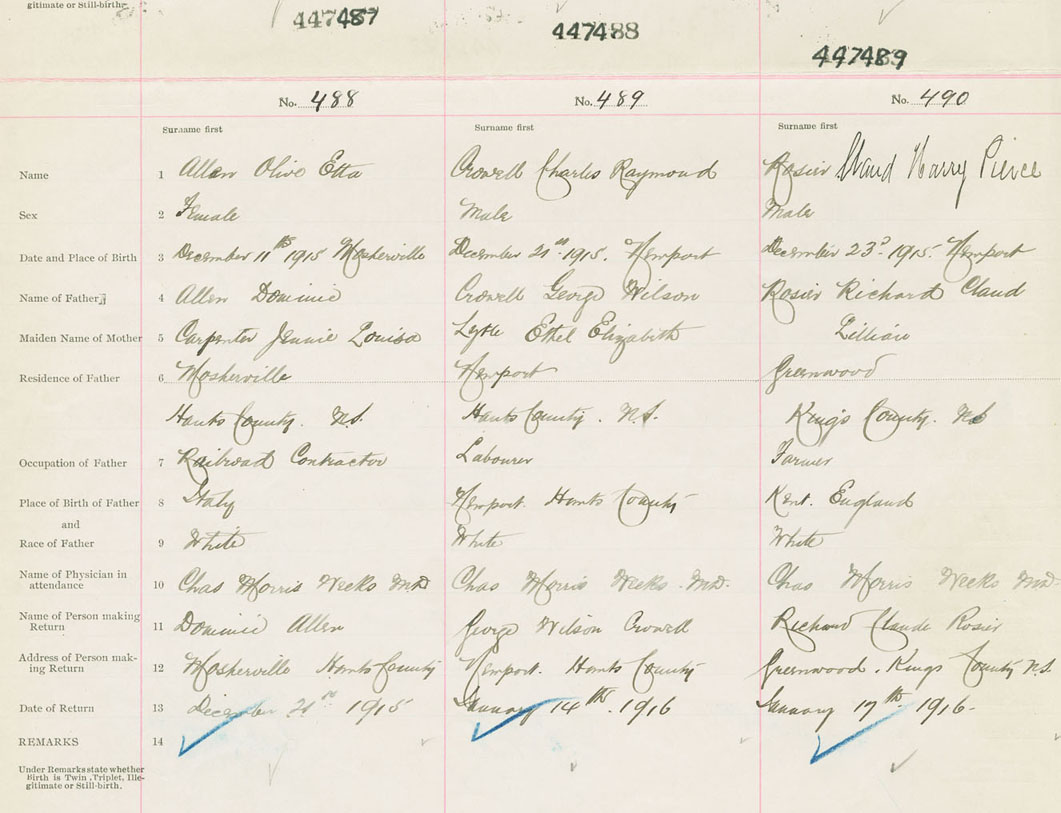 gitimate or Still-birth.
447487
447488
447489
No. 488
No. 489
No. 490
Surname first
Surname first
Surname first
Name 1 Allen Olive Etta Crowell Charles Raymond Rosier Claud Harry Pierce
Sex 2 Female Male Male
Date and Place of Birth 3 December 11th 1915 Mosherville December 21st 1915. Newport December 23d 1915. Newport
Name of Father 4 Allen Dominic Crowell George Wilson Rosier Richard Claud
Maiden Name of Mother 5 Carpenter Jennie Louisa Lytle Ethel Elizabeth Lillian
Residence of Father 6 Mosherville Newport Greenwood
Hants County. N.S. Hants County. N.S. Kings County. N.S
Occupation of Father 7 Railroad Contractor Labourer Farmer
Place of Birth of Father 8 Italy Newport. Hants County Kent. England
and
Race of Father 9 White White White
Name of Physician in
attendance 10 Chas Morris Weeks MD Chas Morris Weeks. MD. Chas Morris Weeks MD.
Name of Person making
Return 11 Dominic Allen George Wilson Crowell Richard Claude Rosier
Address of Person mak-
ing Return 12 Mosherville Hants County Newport. Hants County Greenwood. Kings County N.S.
Date of Return 13 December 21st 1915 January 14th. 1916 January 17th. 1916.
REMARKS 14
Under Remarks state whether
Birth is Twin, Triplet, Ille-
gitimate or Still-birth.